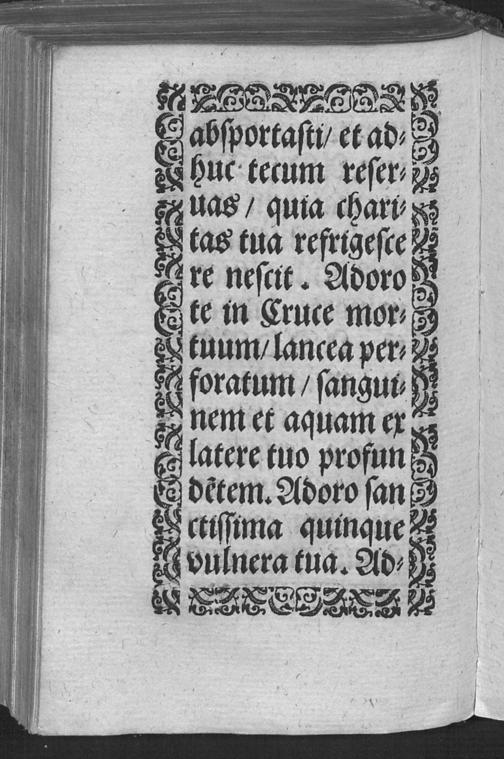 abſportaſti/ et ad⸗
huc tecum reſer⸗
uas / quia chari⸗
tas tua refrigeſce
re neſcit . Adoro
te in Cruce mor⸗
tuum/ lancea per⸗
foratum / ſangui⸗
nem et aquam ex
latere tuo profun
dētem. Adoro ſan
ctiſſima quinque
vulnera tua. Ad⸗